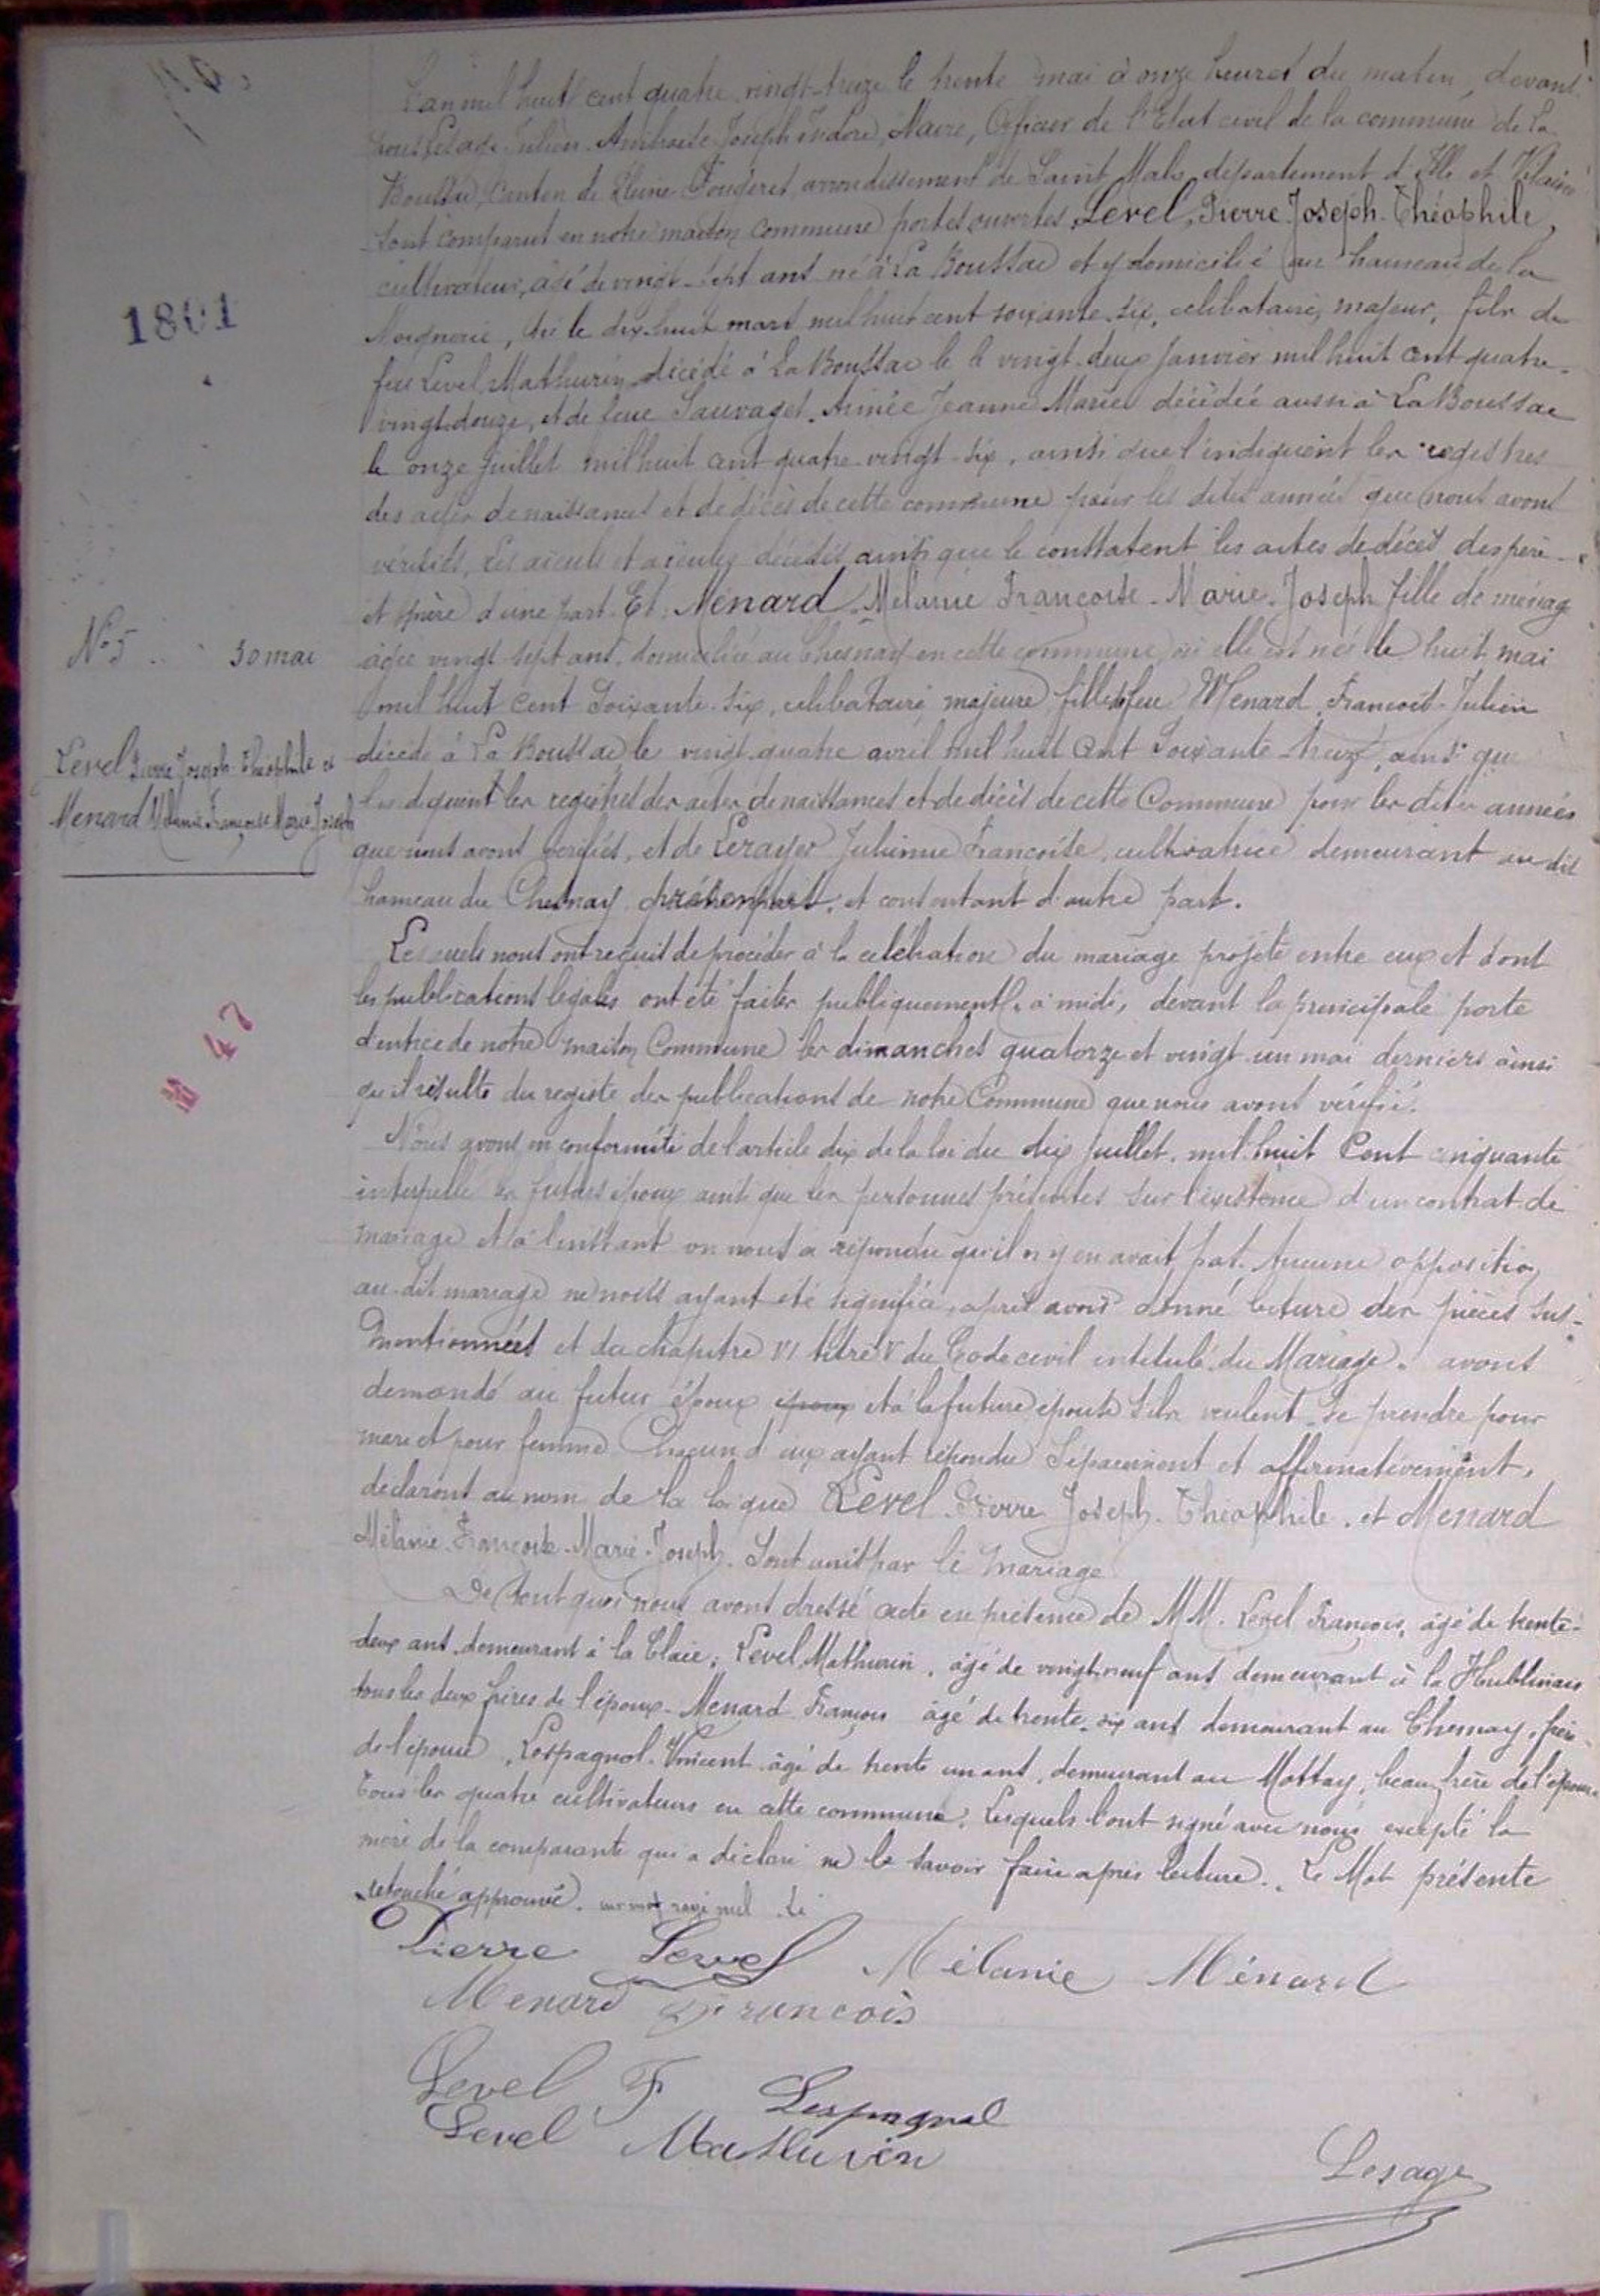 L'an mil huit cent quatre vingt-treize le trente mai à onze heures du matin, devant
nous Lesage Julien Ambroise Joseph Isidore, Maire, Officier de l'Etat civil de la commune de la
Boussac, Canton de Pleine Fougeres, arrondissement de Saint Malo, département d'Ille et Vilaine
sont comparut en notre maison commune portes ouvertes, Level, Pierre Joseph-Théophile,
cultivateur, agé de vingt-sept ans né à La Boussac et y domicilié au hameau de la
né le dix-huit mars mil huit cent soixante-six, célibataire, majeur, fils de
feu Level Mathurin décédé à La Boussac le le vingt-deux Janvier mil huit cent quatre-
vingt-douze, et de feue Sauvaget Aimée Jeanne Marie décédée aussi à La Boussac
le onze Juillet mil huit cent quatre-vingt-six, ainsi que l'indiquent les registres
des actes de naissances et de décès de cette commune pour les dites années que nous avons
vérifiés, les aïeuls et aïeules décédés ainsi que le constatent les actes de décès des père
et mère d'une part. Et Ménard Mélanie Françoise-Marie-Joseph fille de ménage
agée vingt sept ans, domiciliée au Chesnay en cette commune où elle est née le huit mai
mil huit cent soixante-six, célibataire, majeure, fille de feu Menard François-Julien
décédé à La Boussac le vingt-quatre avril mil huit cent soixante-treize, ainsi que
l'indiquent les registres des actes de naissances et de décès de cette Commune pour les dites années
que nous avons vérifiés, et de Lerayer Julienne Françoise, cultivatrice demeurant au dit
hameau du Chesnay présente, et consentant d'autre part.
Lesquels nous ont requis de procéder à la célébration du mariage projeté entre eux et dont
les publications légales ont été faites publiquement à midi, devant la principale porte
d'entrée de notre maison Commune les dimanches quatorze et vingt-un mai derniers ainsi
qu'il résulte du registe des publications de notre Commune que nous avons vérifié.
Nous avons en conformité de l'article dix de la loi du dix Juillet, mil huit Cent cinquante
interpellé les futurs époux ainsi que les personnes présentes sur l'existence d'un contrat de
mariage et à l'instant on nous a répondu qu'il n'y en avait pas. Aucune opposition
au-dit mariage ne nous ayant été signifiée, après avoir donné lecture des pièces sus-
mentionnées et du chapitre VI titre V du Code civil intitulé du Mariage, avons
demandé au futur époux époux et à la future épouse s'ils veulent se prendre pour
mari et pour femme. Chacun d'eux ayant répondu séparément et affirmativement,
déclarons au nom de la loi que Level Pierre Joseph-Théophile, et Ménard
Mélanie-Françoise-Marie-Joseph. Sont unis par le mariage
De tout quoi nous avons dressé acte en présence de MM. Level François, âgé de trente-
deux ans demeurant à la Claie; Level, Mathurin, âgé de vingt-neuf ans demeurant à la Hublinais
tous les deux frères de l'époux- Menard François âgé de trente-six ans demeurant au Chesnay, frère
de l'épouse, Lespagnol Vincent âgé de trente un ans, demeurant au Mottay, beau frère de l'épouse
tous les quatre cultivateurs en cette commune. Lesquels l'ont signé avec nous excepté la
mère de la comparante qui a déclaré ne le savoir faire après lecture. Le Mot présente
retouché approuvé. un mot rayé nul
Pierre Level Mélanie Ménard
Menard François
Level F Lespagnol
Level Mathurin
Lesage
1801
N° 5 30 mai
Level Pierre Joseph-Théophile et
Menard Mélanie Françoise Marie Joseph
47